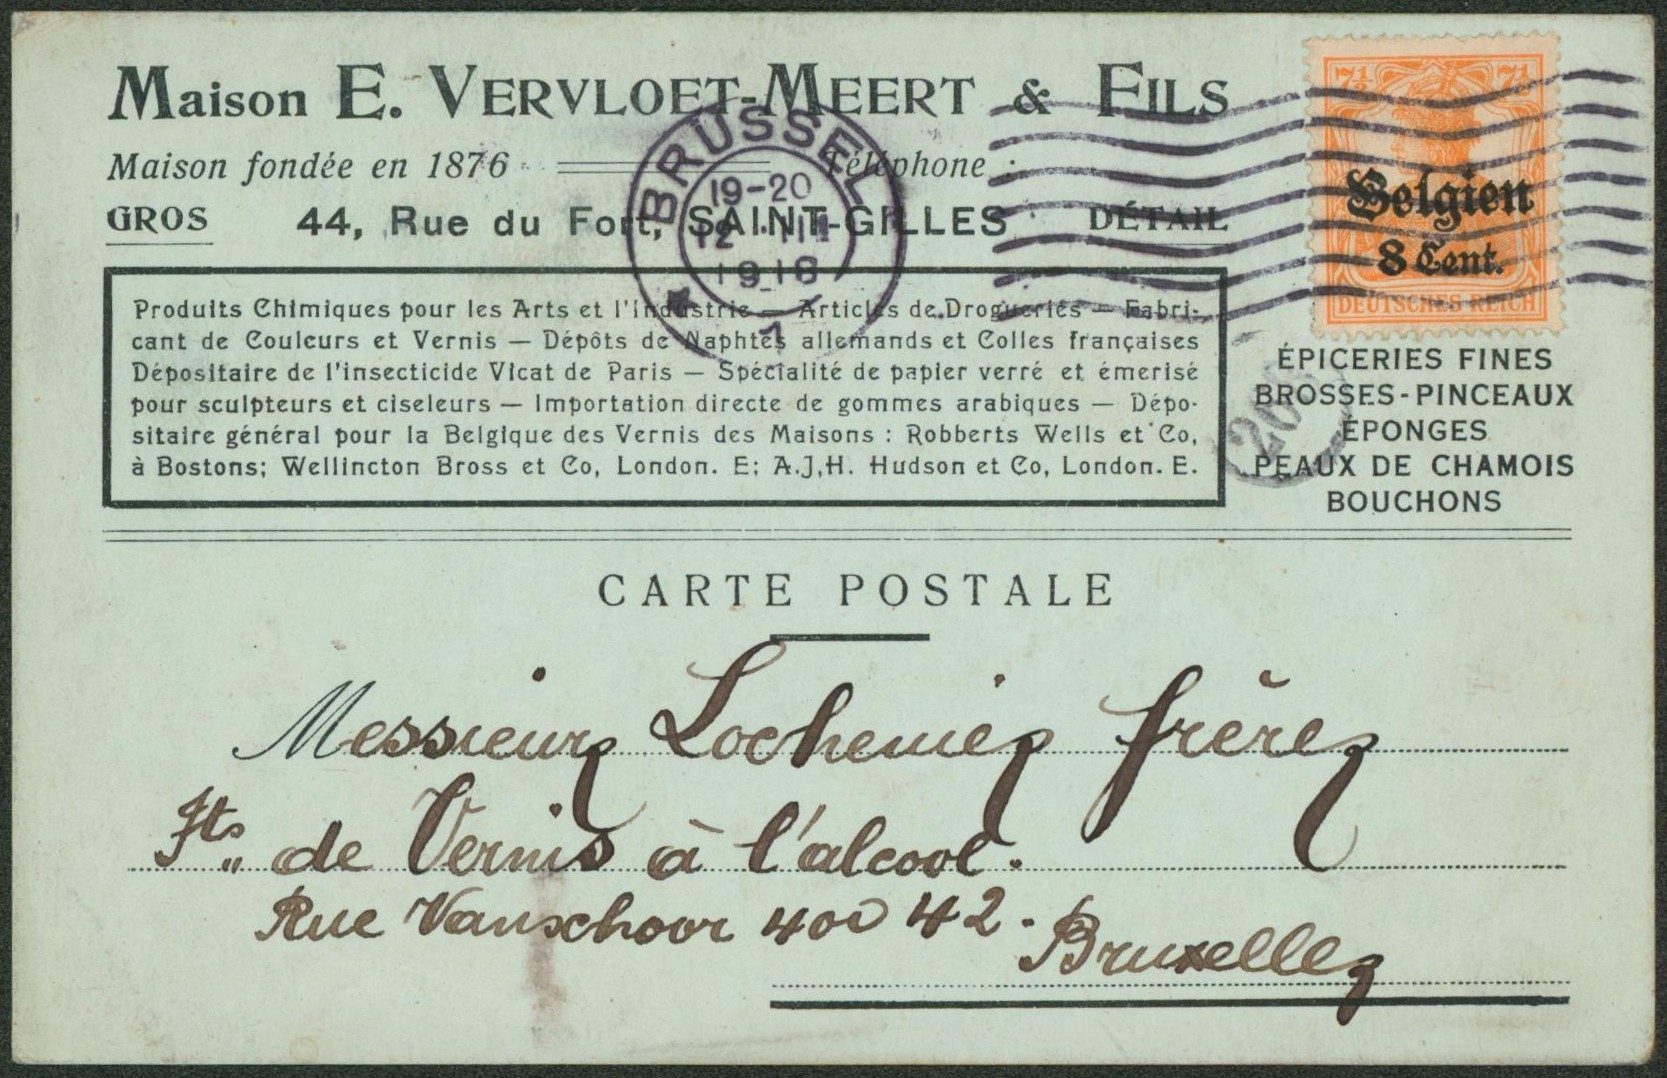 Maison E. VERVLOET-MEERT & FILS
Maison fondée en 1876 Téléphone :
GROS 44, Rue du Fort, SAINT-GILLES DÉTAIL
Produits Chimiques pour les Arts et l'Industrie — Articles de Drogueries — Fabri-
cant de Couleurs et Vernis — Dépôts de Naphtes allemands et Colles françaises
Dépositaire de l'insecticide Vicat de Paris — Spécialité de papier verré et émerisé
pour sculpteurs et ciseleurs — Importation directe de gommes arabiques — Dépo-
sitaire général pour la Belgique des Vernis des Maisons : Robberts Wells et Co,
à Bostons; Wellincton Bross et Co, London. E; A.J,H. Hudson et Co, London. E.
ÉPICERIES FINES
BROSSES-PINCEAUX
ÉPONGES
PEAUX DE CHAMOIS
BOUCHONS
BRUSSEL
19-20
12 VIII
1918
1
7½ 7½
Belgien
8 Cent.
DEUTSCHES REICH
CARTE POSTALE
Messieurs Lochenies frères
Fts de Vernis à l'alcool.
Rue Vanschoor 40 42.
Bruxelles